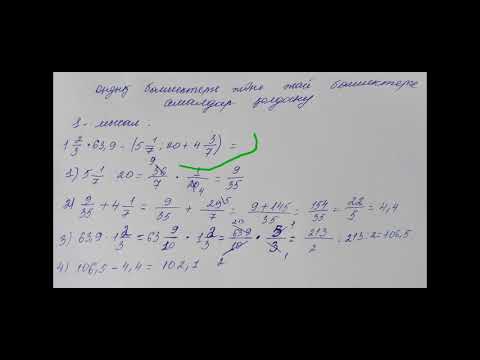 ондық бөлшектерге және жай бөлшектерге
амалдар қолдану
1 - мысал.
1 2/3 · 63,9 - (5 1/7 : 20 + 4 3/7) =
1) 5 1/7 20 = 36/7 · 1/20 = 9/35
2) 9/35 + 4 1/7 = 9/35 + 29/7 = 9+145/35 = 154/35 = 22/5 = 4,4
3) 63,9 · 1 2/3 = 63 9/10 · 1 2/3 = 639/10 · 5/3 = 213/2 = 213:2 = 106,5
4) 106,5 - 4,4 = 102,1